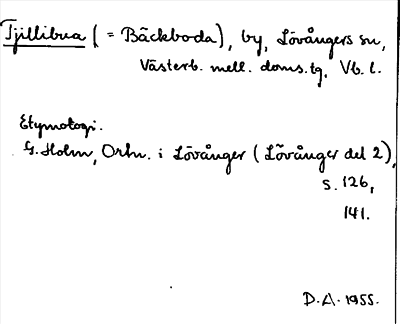 Tjillibua (= Bäckboda), by, Lövångers sn,
Västerb. mell. doms.tg. Vb. l.
Etymologi.
G. Holm, Ortn. i Lövånger (Lövånger del 2),
s. 126,
141.
D.A. 1955.